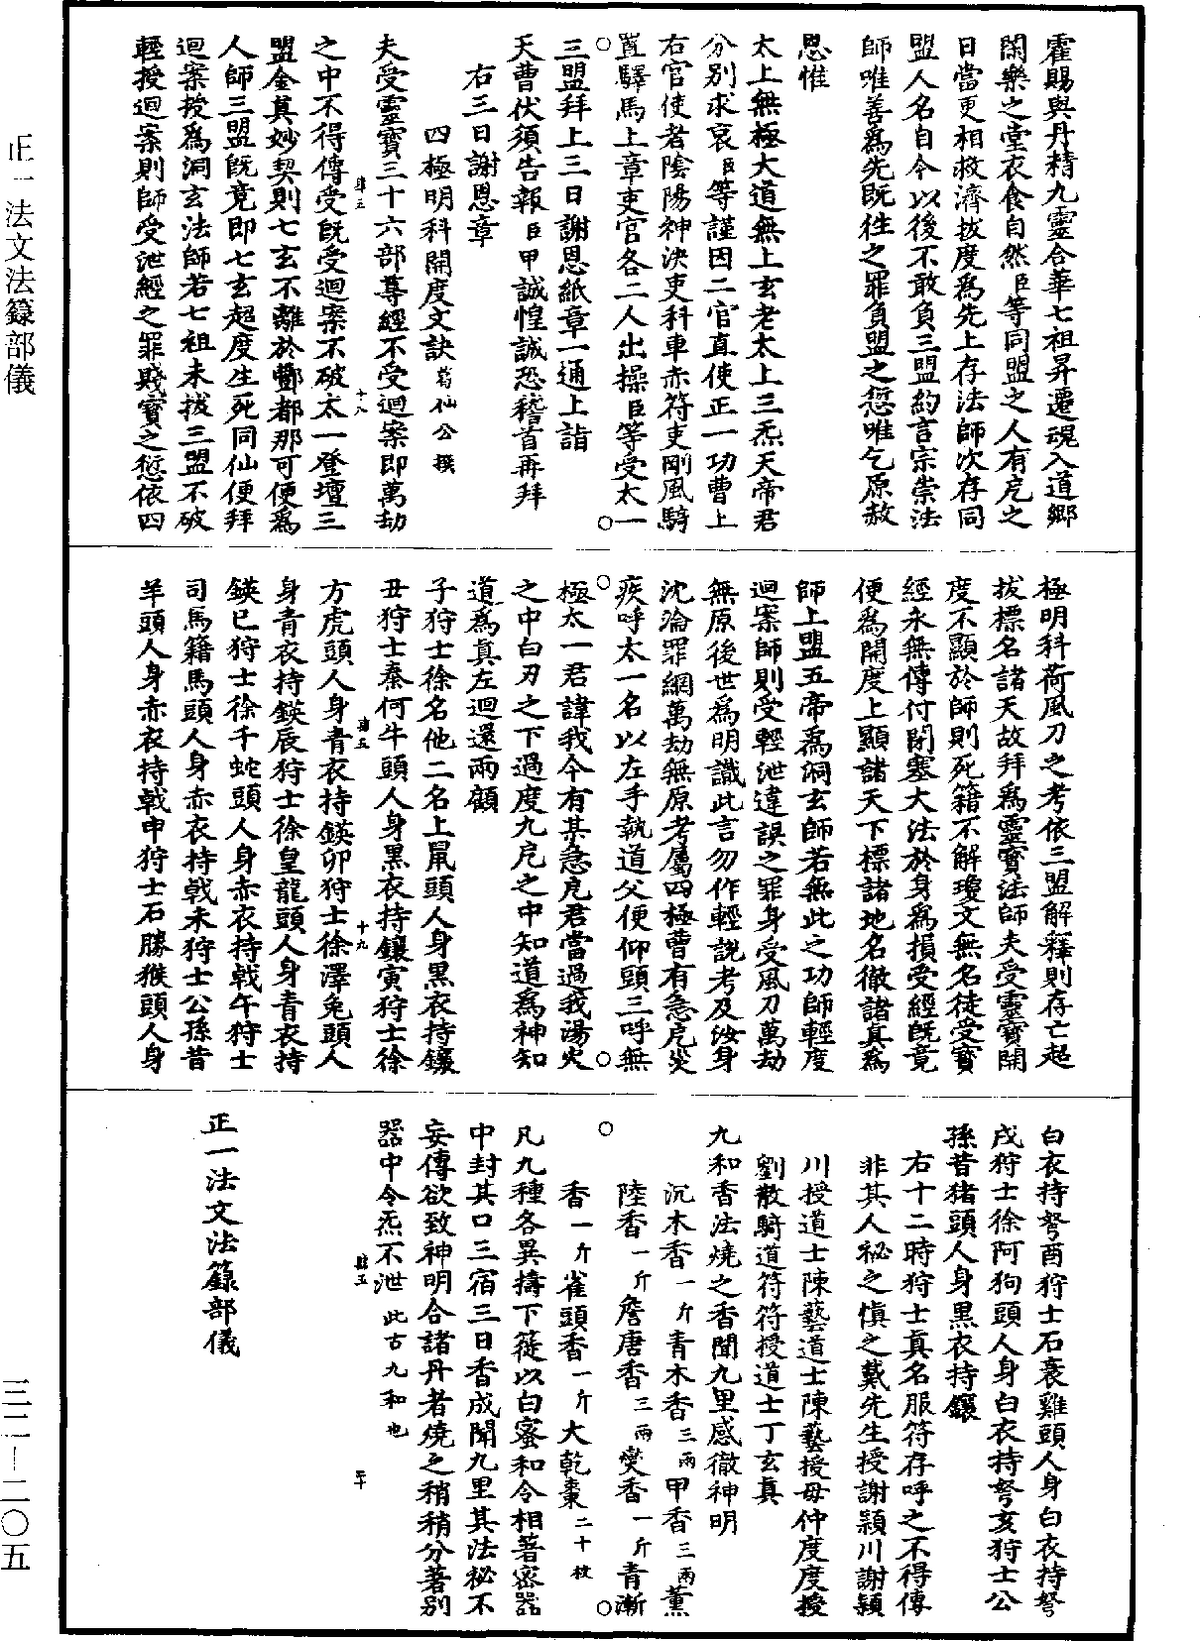 霍賜與丹精九靈合華七祖昇遷魂入道鄉
閑樂之堂衣食自然臣等同盟之人有危之
日當更相救濟拔度爲先上存法師次存同
盟人名自今以後不敢負三盟約言宗崇法
師唯善爲先既往之罪負盟之愆唯乞原赦
思惟
太上無極大道無上玄老太上三炁天帝君
分別求哀臣等謹因二官直使正一功曹上
右官使者陰陽神決吏科車赤符吏剛風騎
置驛馬上章吏官各二人出操臣等受太一
三盟拜上三日謝恩紙章一通上詣
天曹伏須告報臣甲誠惶誠恐稽首再拜
右三日謝恩章
四極明科開度文訣葛仙公撰
夫受靈寶三十六部尊經不受迴案即萬劫
肆五 十八
之中不得傳受既受迴案不破太一登壇三
盟金真妙契則七玄不離於酆都那可便爲
人師三盟既竟即七玄超度生死同仙便拜
迴案授爲洞玄法師若七祖未拔三盟不破
輕授迴案則師受泄經之罪賤寶之愆依四
極明科荷風刀之考依三盟解釋則存亡超
拔標名諸天故拜爲靈寶法師夫受靈寶開
度不顯於師則死籍不解瓊文無名徒受寶
經永無傳付閉塞大法於身爲損受經既竟
便爲開度上顯諸天下標諸地名徹諸真爲
師上盟五帝爲洞玄師若無此之功師輕度
迴案師則受輕泄違誤之罪身受風刀萬劫
無原後世爲明識此言勿作輕說考及汝身
沈淪罪網萬劫無原考屬四極曹有急危災
疾呼太一名以左手執道父便仰頭三呼無
極太一君諱我今有某急危君當過我湯火
之中白刃之下過度九危之中知道爲神知
道爲真左迴還兩顧
子狩士徐名他二名上鼠頭人身黑衣持鑲
丑狩士秦何牛頭人身黑衣持鑲寅狩士徐
肆五 十九
方虎頭人身青衣持鍈卯狩士徐澤兔頭人
身青衣持鍈辰狩士徐皇龍頭人身青衣持
鍈巳狩士徐千蛇頭人身赤衣持戟午狩士
司馬籍馬頭人身赤衣持戟未狩士公孫昔
羊頭人身赤衣持戟申狩士石勝猴頭人身
白衣持弩酉狩士石衰雞頭人身白衣持弩
戌狩士徐阿狗頭人身白衣持弩亥狩士公
孫昔猪頭人身黑衣持鑲
右十二時狩士真名服符存呼之不得傳
非其人祕之慎之戴先生授謝潁川謝潁
川授道士陳藝道士陳藝授毋仲度度授
劉散騎道符符授道士丁玄真
九和香法燒之香聞九里感徹神明
沉木香一斤青木香三兩甲香三兩薰
陸香一斤詹唐香三兩㷼香一斤青漸
香一斤雀頭香一斤大乾棗二十枚
凡九種各異擣下簁以白蜜和令相著密器
中封其口三宿三日香成聞九里其法祕不
妄傳欲致神明合諸丹者燒之稍稍分著別
肆五 二十
器中令炁不泄此古九和也
正一法文法籙部儀
正一法文法籙部儀
三二—二〇五